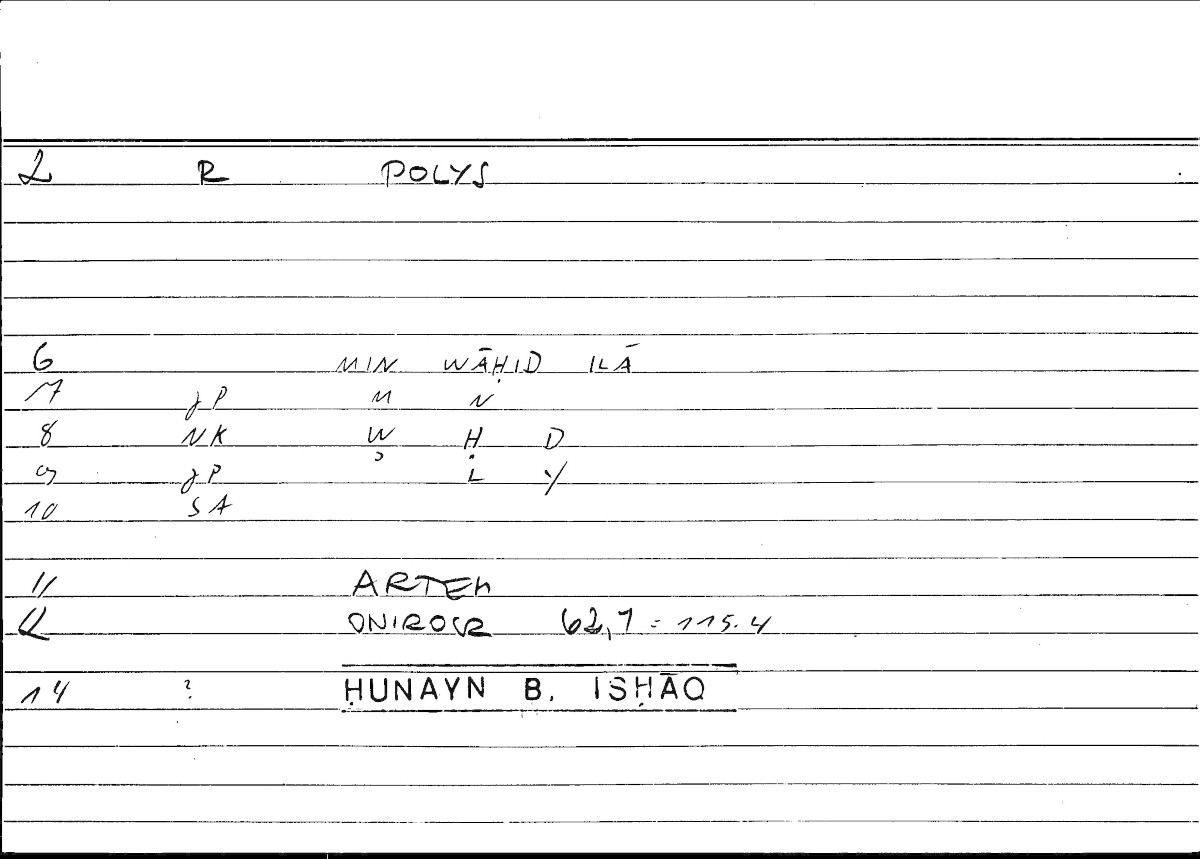 2 R POLYS
6 MIN WĀḤID ILĀ
7 JP M N
8 NK W Ḥ D
9 JP ʾ L Y
10 SA
11 ARTEM
12 ONIROCR 62,7 = 115.4
14 ? ḤUNAYN B. ISḤĀQ